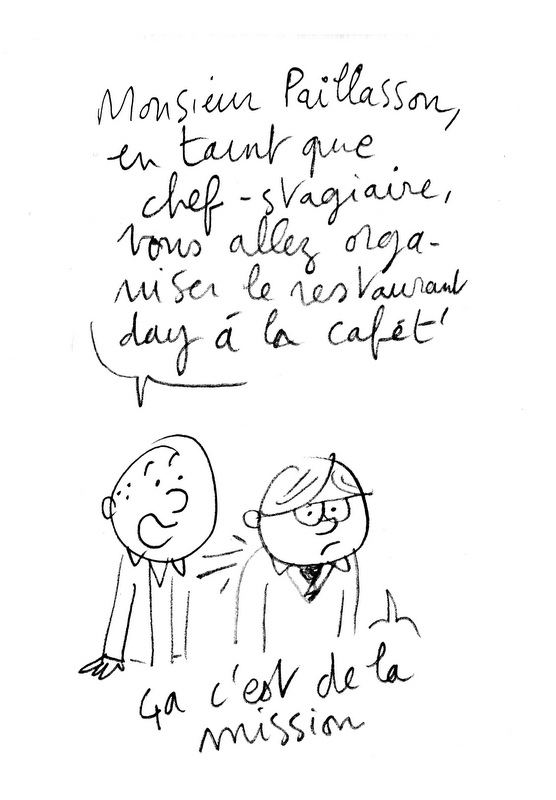 Monsieur Paillasson,
en tant que
chef-stagiaire,
vous allez orga-
niser le restaurant
day à la cafét'
ça c'est de la
mission